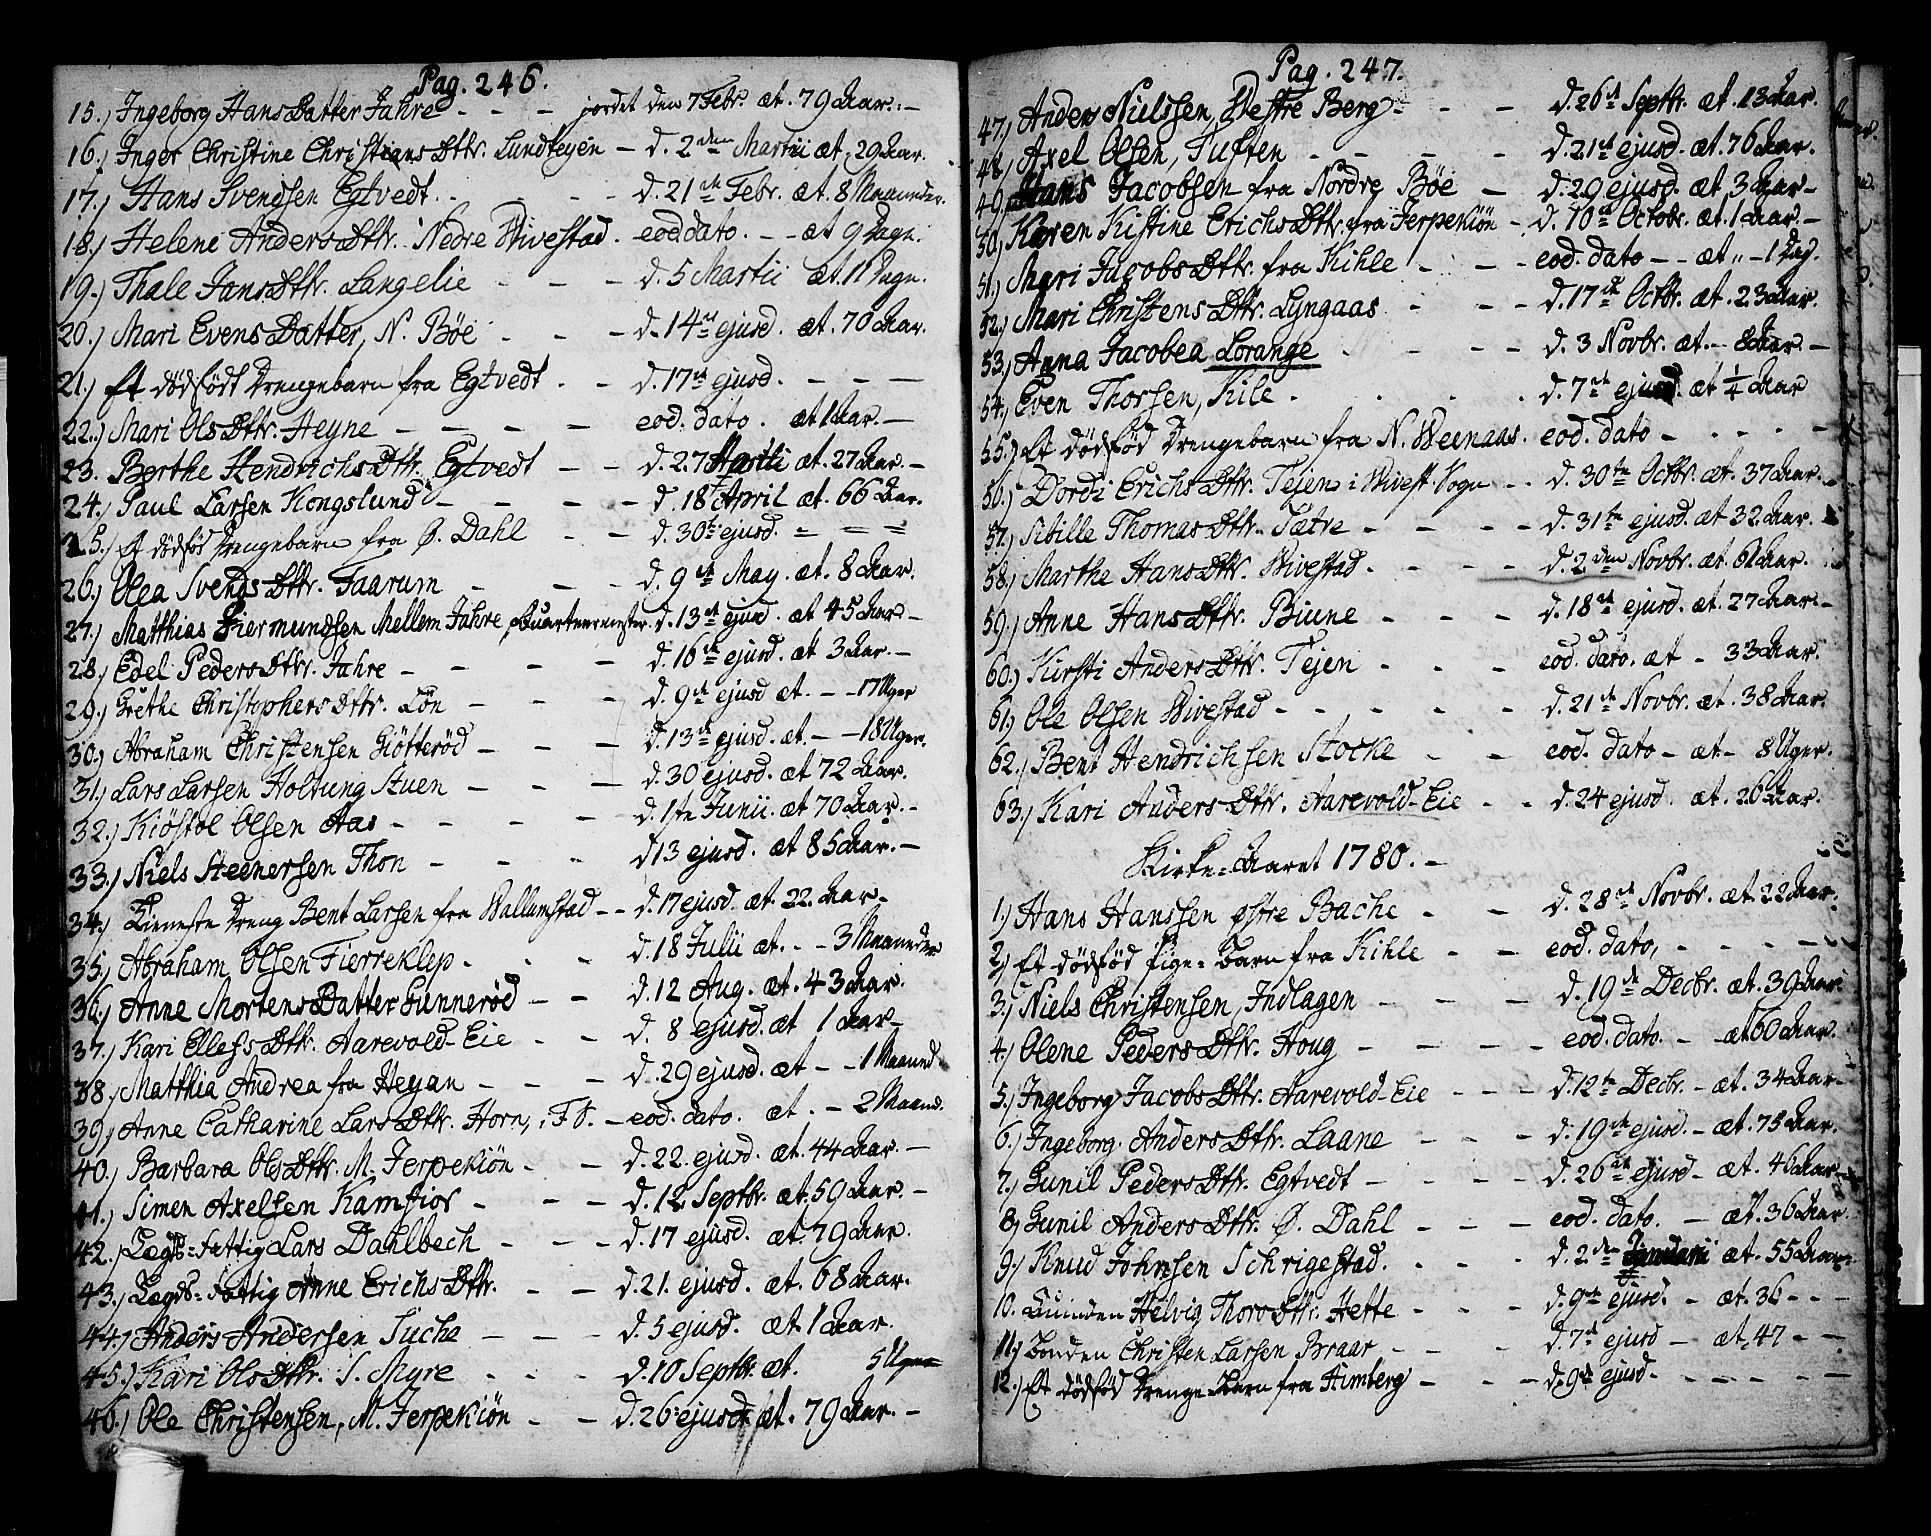 Pag. 246.
15.) Ingeborg HansDatter Jahre - - - jordet den 7 Febr. æt. 79 Aar. -
16.) Inger Christine ChristiansDttr. Lundteyen - d. 2den Martii æt. 29 Aar.
17.) Hans Svendsen Egtvedt. - - - d. 21de Febr. æt. 8 Maaneder.
18.) Helene AndersDttr. Nedre Wivestad. eod. dato. - - æt 9 Dage.
19.) Thale JansDttr. Langelie - - - d. 5 Martii æt. 11 Dage.
20.) Mari EvensDatter, N. Bøe - - - d. 14de ejusd. æt. 70 Aar.
21.) Et dödfödt Drengebarn fra Egtvedt. - - d. 17de ejusd. - - -
22.) Mari OlsDttr. Heyne - - - - eod. dato. æt 1 Aar. -
23. Berthe HendrichsDttr. Egtvedt - - d. 27 Martii æt. 27 Aar. -
24.) Paul Larsen Kongslund - - - - d. 18 April æt. 66 Aar.
25.) Et dödföd Drengebarn fra Ø. Dahl - - d. 30te ejusd. = = =
26.) Olea SvendsDttr. Faarum - - - d. 9de May. æt. 8 Aar.
27.) Matthias Giermundsen Mellem Jahre, Quarteermester. d. 13de ejusd. æt 45 Aar -
28.) Edel PedersDttr. Jahre - - - - d. 16de ejusd. æt 3 Aar. -
29.) Grethe ChristophersDttr. Lön - - - d. 9de ejusd æt. - - 17 Uger
30.) Abraham Christensen Giötteröd - - - d. 13de ejusd. æt. - - 18 Uger.
31.) Lars Larsen Holtung Stuen - - - d. 30 ejusd. æt 72 Aar.
32.) Kiöstol Olsen Aas - - - - d. 1ste Junii. æt 70 Aar. -
33.) Niels Steenersen Thon - - - d 13 ejusd. æt 85 Aar. -
34.) Tieneste Dreng Bent Larsen fra Wallumstad - - d. 17 ejusd. æt. 22. Aar -
35.) Abraham Olsen Fierreklep - - - d. 18 Julii æt. - - 3 Maaneder
36.) Anne MortensDatter Gunneröd - - d. 12 Aug. æt. 43 Aar.
37.) Kari EllefsDttr. Aarevold-Eie - - d. 8 ejusd. æt 1 Aar -
38.) Matthia Andrea fra Heyan - - - d. 29 ejusd. æt - - 1 Maaned.
39.) Anne Catharine LarsDttr. Horn, i F. S. - eod. dato. æt. - 2 Maand.
40.) Barbara OlsDttr. M. Jerpekiön - - d. 22. ejusd. æt. 44 Aar. -
41.) Simen Axelsen Kamfior - - - d. 12. Septbr. æt. 59 Aar. -
42.) Lægds-Fattig Lars Dahlbech - - - d. 17 ejusd. æt. 79 Aar.
43.) Lægds-Fattig Anne ErichsDttr. - - d. 21. ejusd. æt. 68 Aar.
44.) Anders Andersen Suche - - - d. 5 ejusd. æt. 1 Aar.
45.) Kari OlsDttr. S. Myre - - - d. 10 Septbr. æt. 5 Uger
46.) Ole Christensen, M. Jerpekiön - - d. 26 ejusd. æt. 79 Aar. -
Pag. 247.
47.) Anders Nielssen, Westre Berg - - - d. 26de Septbr. æt. 13 Aar.
48.) Axel Olsen, Tuften - - - - d. 21de ejusd. æt. 76 Aar.
49. Hans Jacobsen fra Nordre Böe - d. 29 ejusd. æt. 3 Aar -
50.) Karen Kistine ErichsDttr. fra Jerpekiön - d. 10de Octobr. æt. 1 Aar. -
51.) Mari JacobsDttr. fra Kihle - - - eod. dato - - æt " - 1 Dag.
52.) Mari ChristensDttr. Lyngaas - - d. 17de Octbr. æt. 23 Aar.
53.) Anna Jacobea Lorange - - - d. 3 Novbr. æt. - 8 Aar. -
54.) Even Thorsen, Kile - - - d. 7de ejusd æt 1/4 Aar
55.) Et dödföd Drengebarn fra N. Weenaas. eod. dato - - - - -
56.) Dordi ErichsDttr. Tejen i Wivest. Sogn - - d. 30te Octbr. æt. 37 Aar.
57.) Sibille ThomasDttr. Tætve - - - - d. 31te ejusd. æt 32. Aar.
58.) Marthe HansDttr. Wivestad. - - - d. 2den Novbr. æt. 61 Aar.
59.) Anne HansDttr. Biune - - - d. 18de ejusd. æt. 27 Aar -
60.) Kirsti AndersDttr. Tejen - - - eod. dato. æt - 33 Aar.
61.) Ole Olsen Wivestad - - - - - d. 21de Novbr. æt. 38 Aar.
62.) Bent Hendrichsen Stocke - - eod. dato - æt - 8 Uger.
63.) Kari AndersDttr. Aarevold-Eie - - d. 24 ejusd. æt. 26 Aar.
Kirke-Aaret 1780. -
1.) Hans Hanssen østre Bache - - d. 28de Novbr. æt. 22 Aar.
2.) Et dödföd Pige-Barn fra Kihle - - eod. dato, - - - -
3.) Niels Christensen, Indlagen - - - d. 19de Decbr. æt. 39 Aar.
4.) Olene PedersDttr. Houg - - - - eod. dato. - æt 60 Aar.
5.) Ingeborg JacobsDttr. Aarevold-Eie - - - d. 12te Decbr. - æt. 34 Aar -
6.) Ingeborg AndersDttr. Laane - - - d. 19de ejusd. - æt. 75 Aar.
7.) Gunil PedersDttr. Egtvedt - - - - d. 26de ejusd - æt. 46 Aar.
8.) Gunil AndersDttr. Ø. Dahl - - - eod. dato. - æt. 36 Aar
9.) Knud Johnsen Schrigestad. - - - d. 2den Januarii æt. 55 Aar
10. Quinden Helvig ThoroDttr. Hette - - - d. 9de ejusd. - æt. 36 - - -
11.) Bonden Christen Larsen Braar - - - d. 7de ejusd - æt. 47 - -
12.) Et dödföd Drenge-Barn fra Himberg - - - d. 9de ejusd. - - - - -